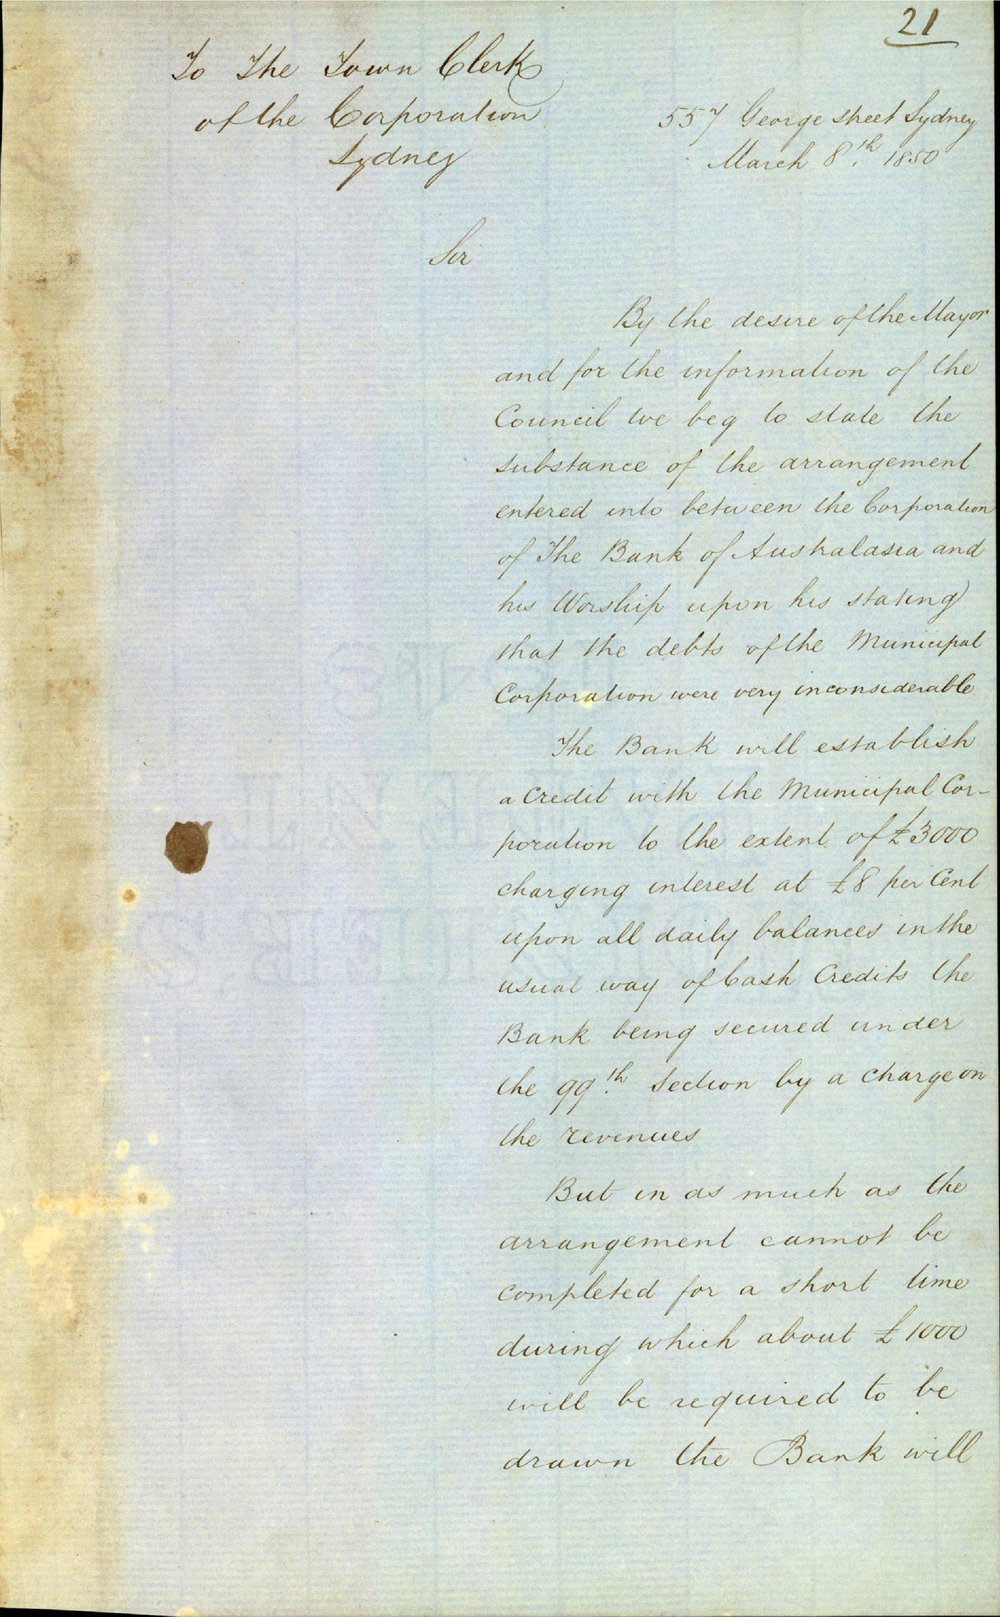 21
To The Town Clerk
of the Corporation
Sydney
557 George street Sydney
March 8th. 1850
Sir
By the desire of the Mayor
and for the information of the
Council we beg to state the
substance of the arrangement
entered into between the Corporation
of The Bank of Australasia and
his Worship upon his stating
that the debts of the Municipal
Corporation were very inconsiderable
The Bank will establish
a Credit with the Municipal Cor-
poration to the extent of £3000
charging interest at £8 per Cent
upon all daily balances in the
usual way of Cash Credits the
Bank being secured under
the 99th. Section by a charge on
the revenues
But in as much as the
arrangement cannot be
completed for a short time
during which about £1000
will be required to be
drawn the Bank will